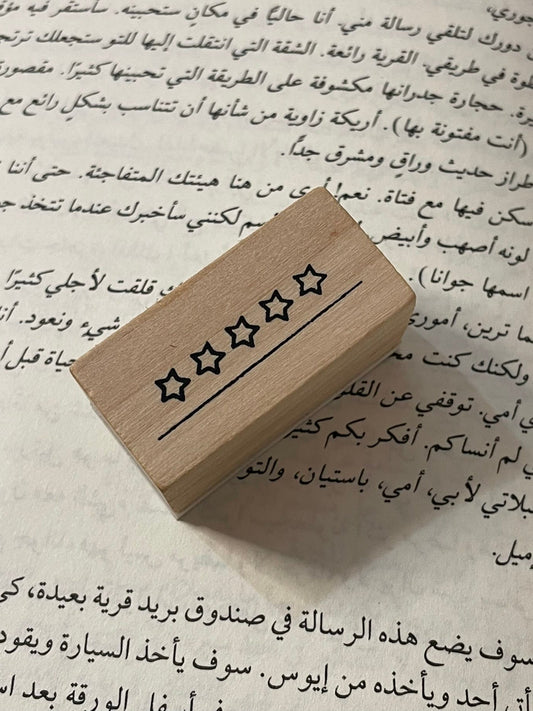 جوري،
دورك لتلقي رسالة مني. أنا حاليًا في مكان ستحبينه. سأستقر فيه
في طريقي. القرية رائعة. الشقة التي انتقلت إليها للتو ستجعلك
حجارة جدرانها مكشوفة على الطريقة التي تحبينها كثيرًا. مقصورة
(أنت مفتونة بها). أريكة زاوية من شأنها أن تتناسب بشكلٍ رائع مع
طراز حديث وراقٍ ومشرق جداً.
سكن فيها مع فتاة. نعم! أرى من هنا هيئتك المتفاجئة. حتى أننا
لونه أصهب وأبيض لكنني سأخبرك عندما تتخذ
اسمها جوانا). قلقت لأجلي كثيرًا
ترين، أموري شيء ونعود.
ولكنك كنت قبل
أمي. توقفي عن
لم أنساكم. أفكر بكم
لأبي، أمي، باستيان،
إميل.
سوف يضع هذه الرسالة في صندوق بريد قرية بعيدة،
أحد ويأخذه من إيوس. سوف يأخذ السيارة ويقود
الورقة بعد